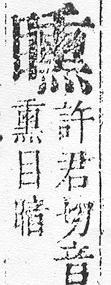 矄
許君切音
熏目暗